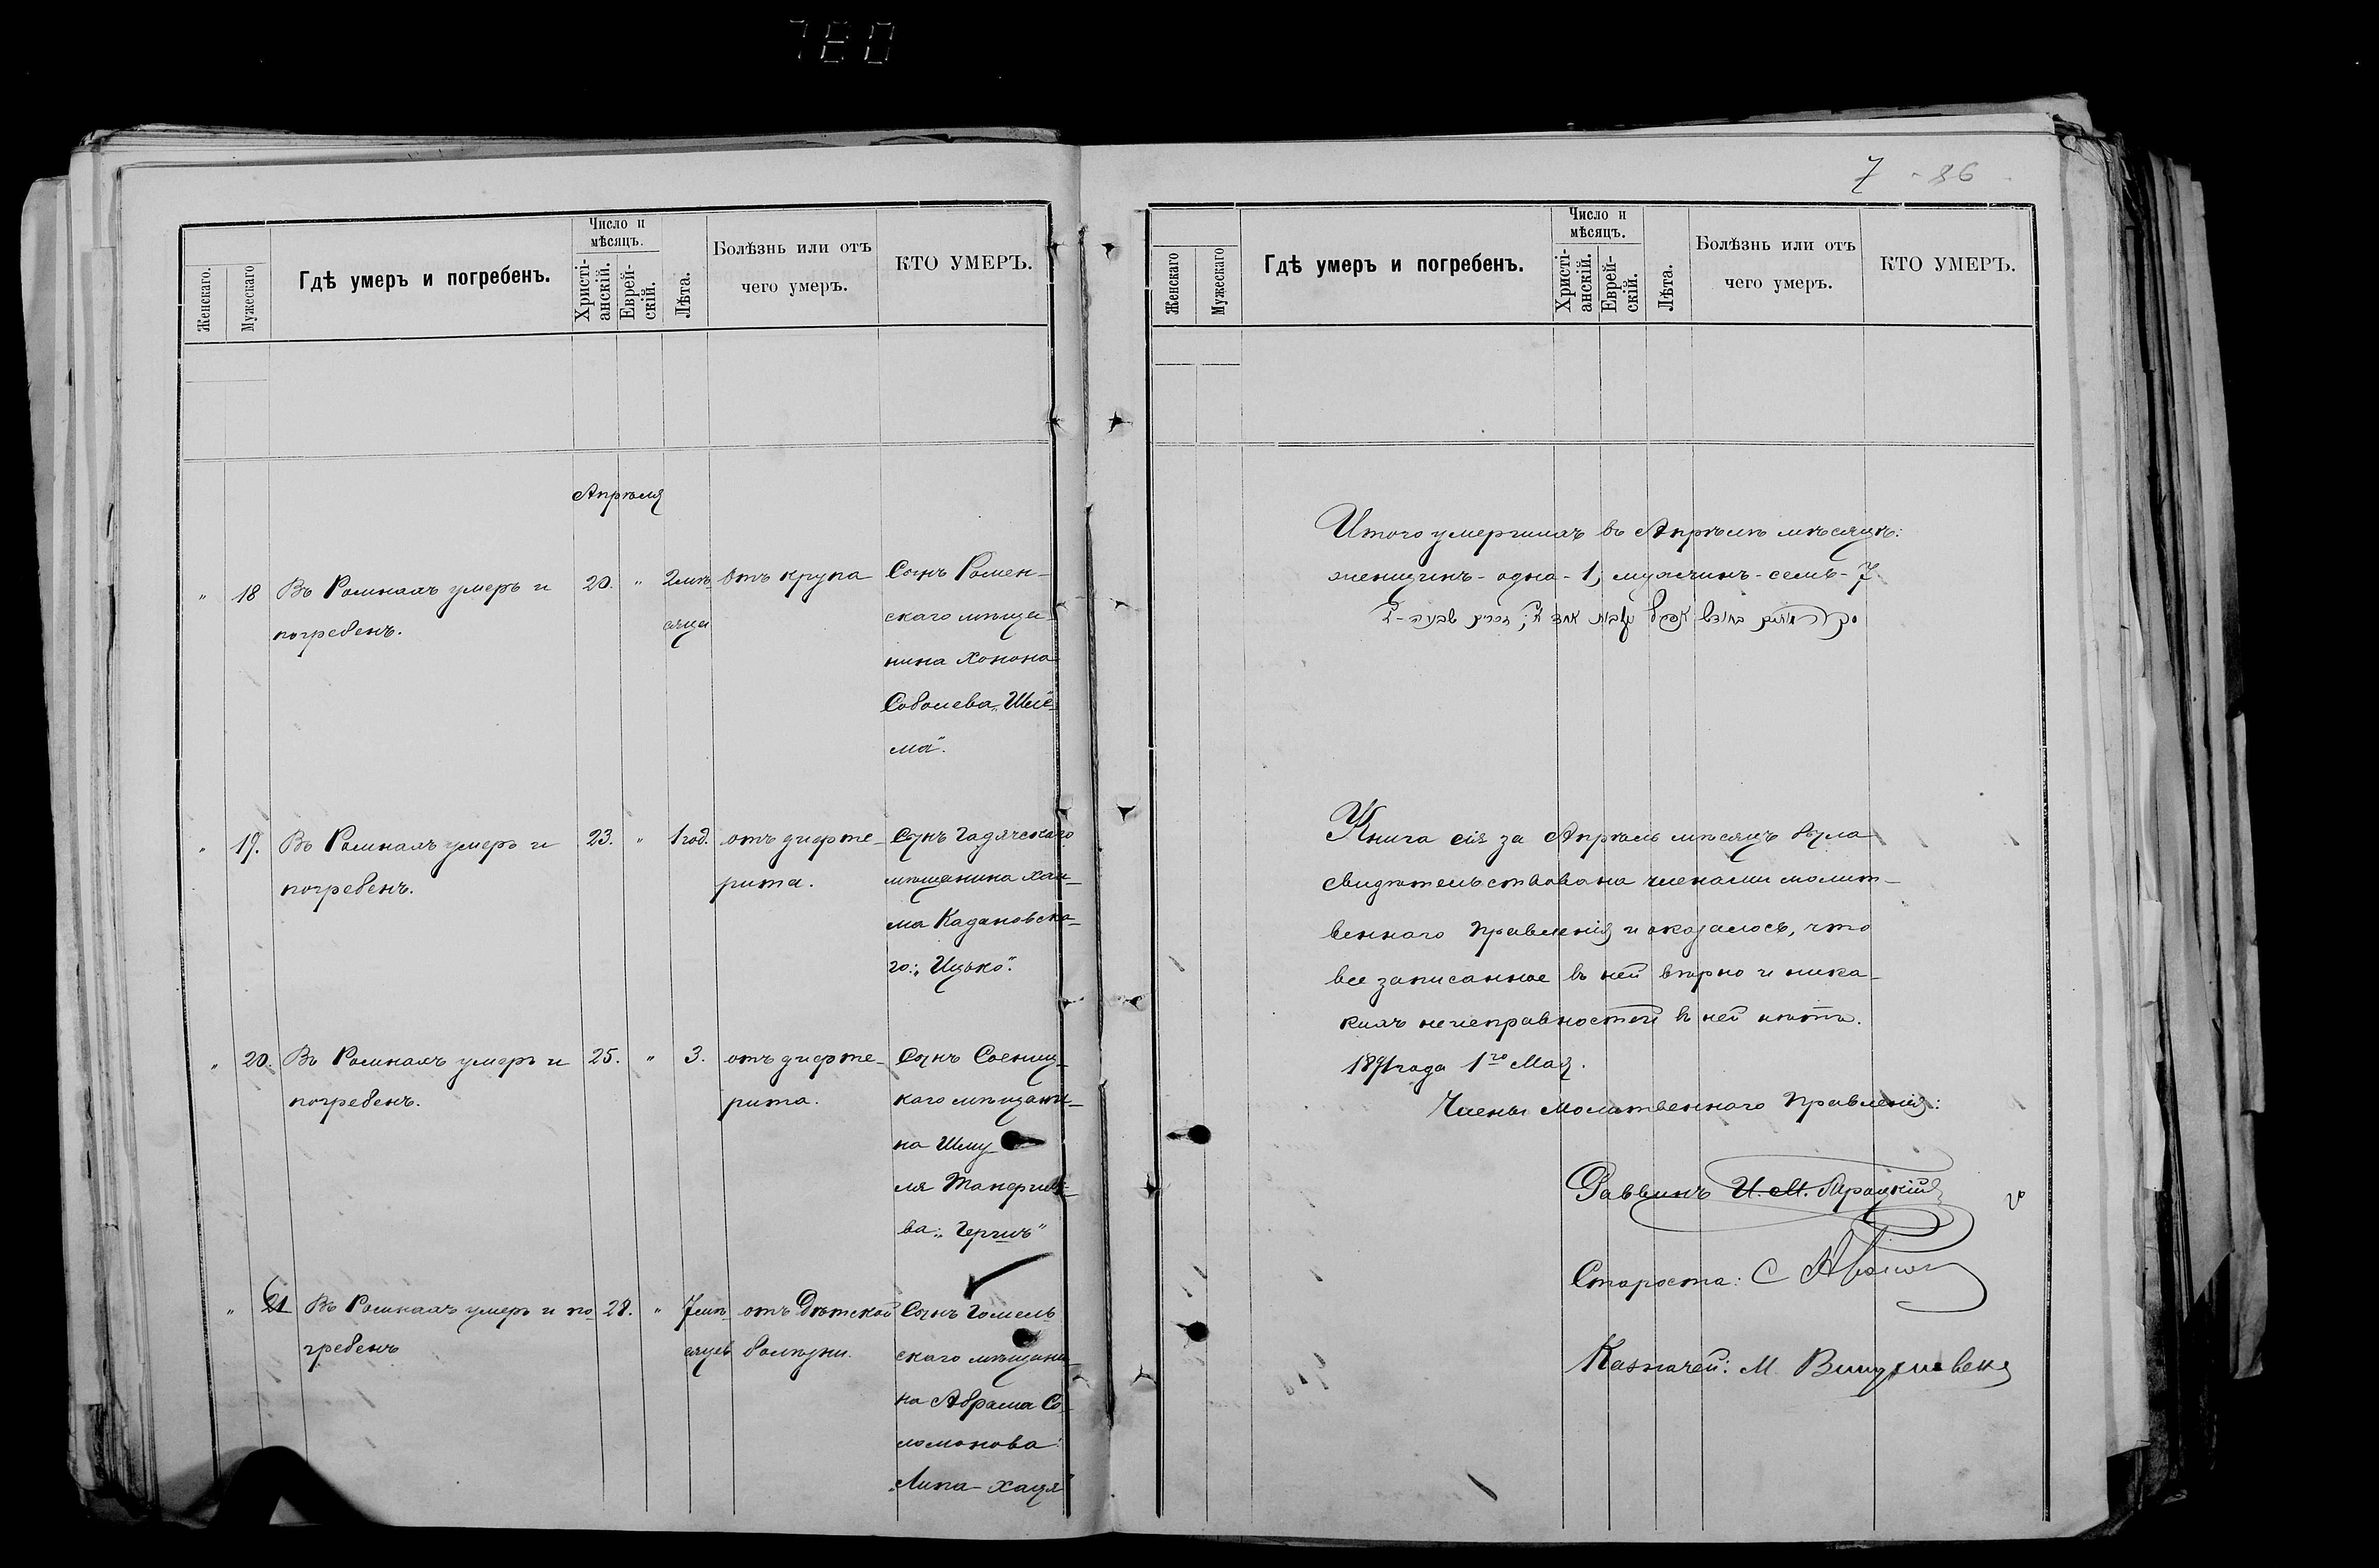 780
Женскаго.
Мужескаго
Гдѣ умеръ и погребенъ.
Число и
мѣсяцъ.
Христі-
анскій.
Еврей-
скій.
Лѣта.
Болѣзнь или отъ
чего умеръ.
КТО УМЕРЪ.
Апрѣля
" 18 Въ Ромнахъ умеръ и 20. " 2 мѣ- Отъ крупа Сынъ Ромен-
погребенъ. сяца скаго мѣща-
нина Хонона
Соболева „Шлё-
ма".
" 19. Въ Ромнахъ умеръ и 23. " 1 год. отъ дифте- Сынъ Гадячскаго
погребенъ. рита. мѣщанина Хаи-
ма Кадановска-
го: „Ицько".
" 20. Въ Ромнахъ умеръ и 25. " 3. отъ дифте- Сынъ Сосниц-
погребенъ. рита. каго мѣщани-
на Шму
ля
ва: „Гершъ"
" 21 Въ Ромнахъ умеръ и по- 28. " 7 мѣ- отъ Дѣтской Сынъ Гомель
гребенъ сяцевъ болѣзни. скаго мѣщани-
на Абрама Со-
ломонова:
„Липа-Хаця"
7 - 86
Женскаго
Мужескаго
Гдѣ умеръ и погребенъ.
Число и
мѣсяцъ.
Христі-
анскій.
Еврей-
скій.
Лѣта.
Болѣзнь или отъ
чего умеръ.
КТО УМЕРЪ.
Итого умершихъ въ Апрѣлѣ мѣсяцѣ:
женщинъ - одна - 1; мужчинъ - семь - 7
Книга сія за Апрѣль мѣсяцъ была
свидѣтельствована членами молит-
веннаго Правленія и оказалось, что
все записанное въ ней вѣрно и ника-
кихъ неисправностей въ ней нѣтъ.
1891 года 1го Мая.
Члены Молитвеннаго Правленія:
Раввинъ И. М.
Староста: С
Казначей: М.